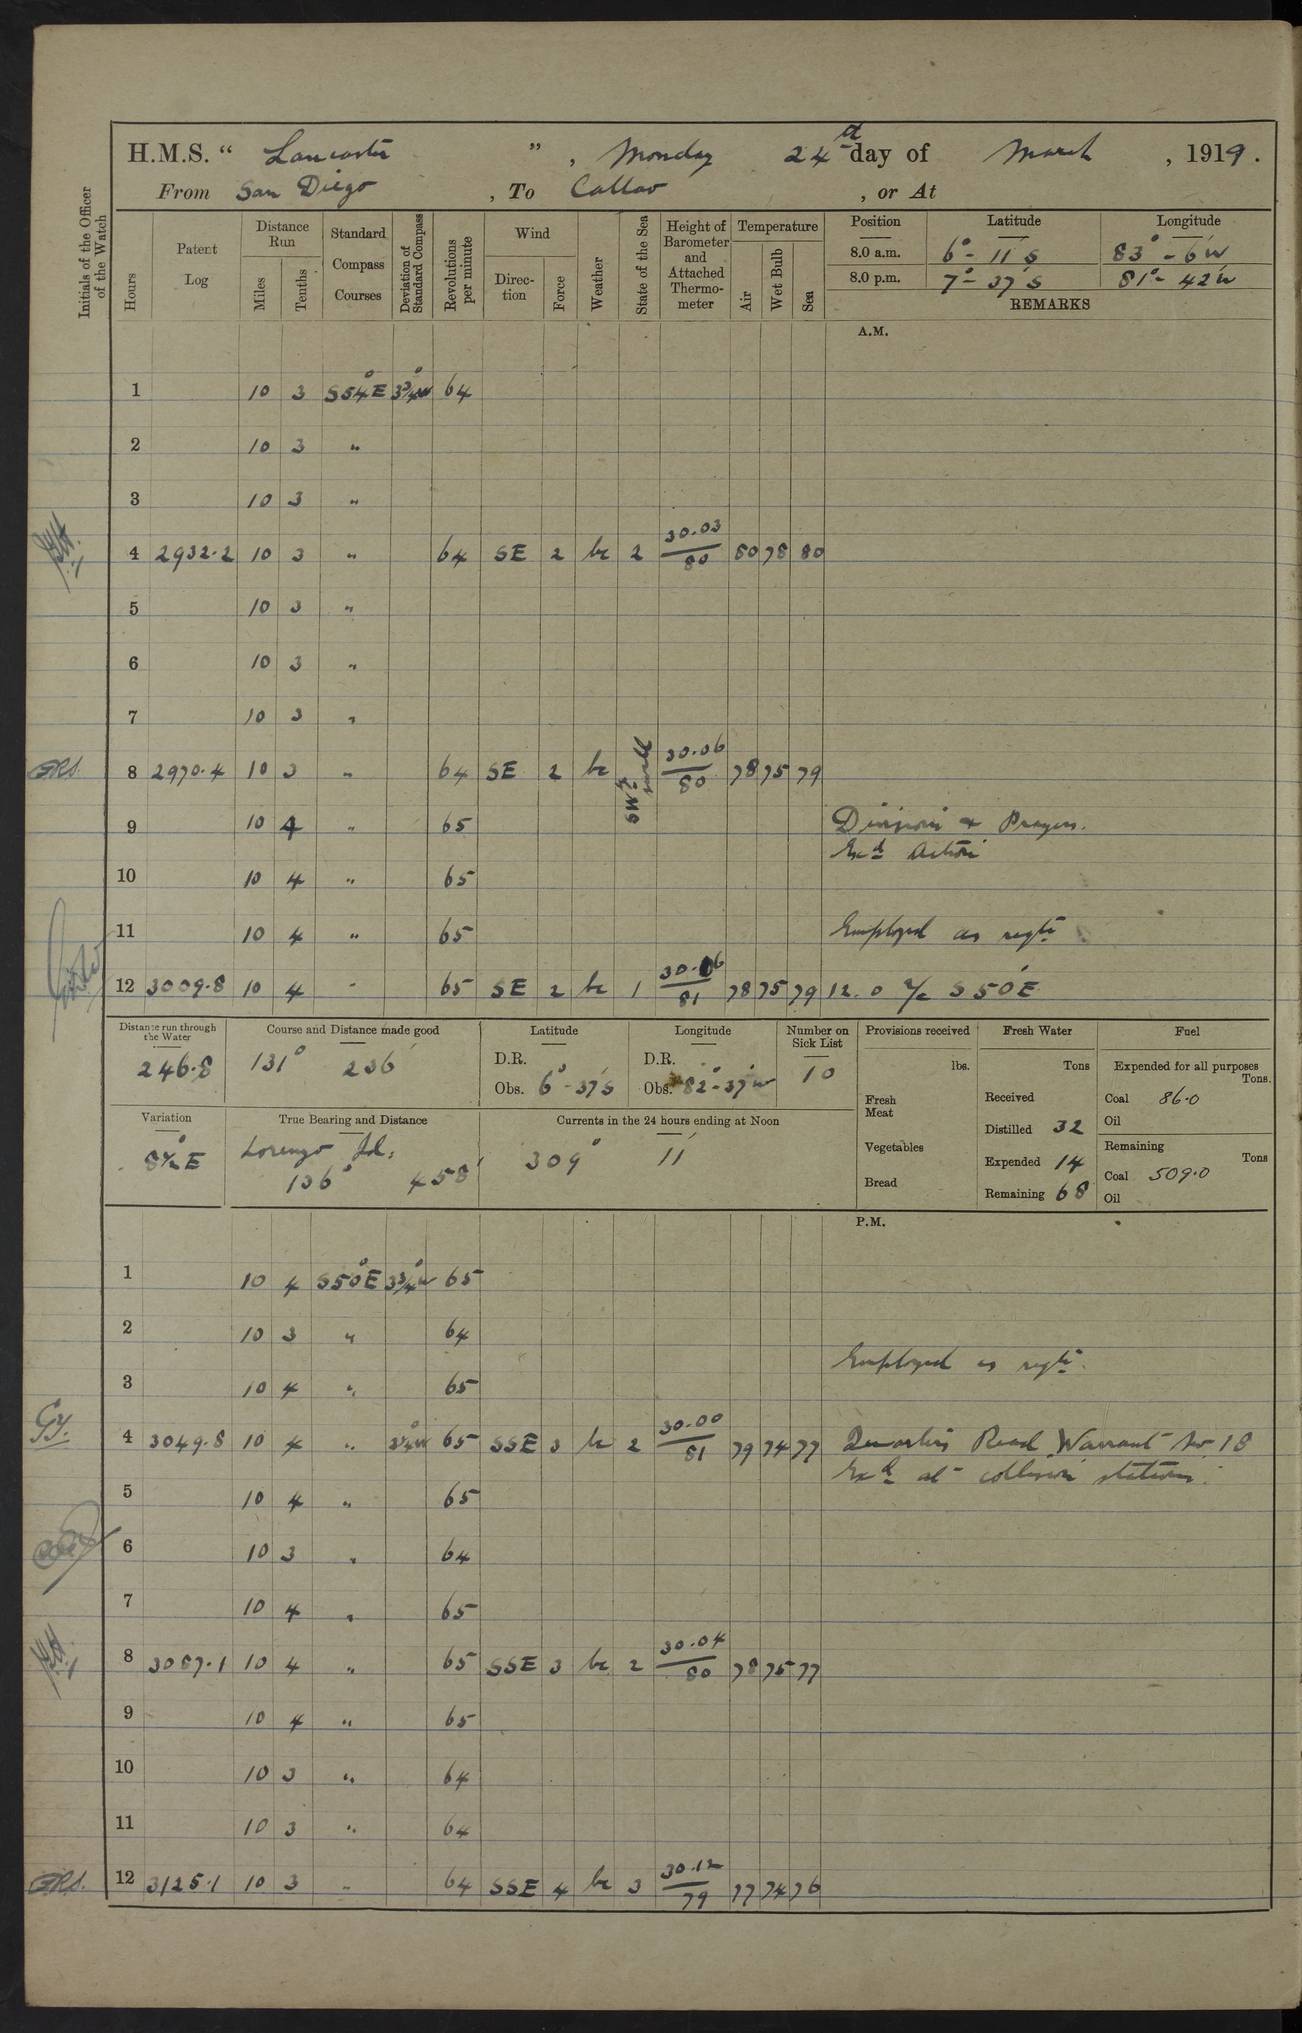 H.M.S. " Lancaster ", Monday 24th day of March, 1919.
From San Diego, To Callao, or At
Initials of the Officer of the Watch
Hours
Patent Log
Distance Run
Miles
Tenths
Standard Compass Courses
Deviation of Standard Compass
Revolutions per minute
Wind
Direction
Force
Weather
State of the Sea
Height of Barometer and Attached Thermometer
Temperature
Air
Wet Bulb
Sea
Position Latitude Longitude
8.0 a.m. 6° - 11' S 83° - 6' W
8.0 p.m. 7° - 37' S 81° - 42' W
REMARKS
A.M.
1 10 3 S54°E 3¾°W 64
2 10 3 "
3 10 3 "
4 2932.2 10 3 " 64 SE 2 bc 2 30.03/80 80 78 80
5 10 3 "
6 10 3 "
7 10 3 "
8 2970.4 10 3 " 64 SE 2 bc SWly swell 30.06/80 78 75 79
9 10 4 " 65 Divisions & Prayers.
Exd Action
10 10 4 " 65
11 10 4 " 65 Employed as reqte
12 3009.8 10 4 " 65 SE 2 bc 1 30.06/81 78 75 79 12.0 a/c S50°E
Distance run through the Water
246.8
Course and Distance made good
131° 236'
Latitude
D.R.
Obs. 6° - 37' S
Longitude
D.R.
Obs. 82° - 37' W
Number on Sick List
10
Provisions received
lbs.
Fresh Meat
Vegetables
Bread
Fresh Water
Tons
Received
Distilled 32
Expended 14
Remaining 68
Fuel
Expended for all purposes
Tons.
Coal 86.0
Oil
Remaining
Tons
Coal 509.0
Oil
Variation
8½°E
True Bearing and Distance
Lorenzo Id.
136° 458'
Currents in the 24 hours ending at Noon
309° 11'
P.M.
1 10 4 S50°E 3¾°W 65
2 10 3 " 64
Employed as reqte.
3 10 4 " 65
4 3049.8 10 4 " 65 SSE 3 bc 2 30.00/81 79 74 77 Quarters Read Warrant No 18
Exd at collision stations.
5 10 4 " 65
6 10 3 " 64
7 10 4 " 65
8 3087.1 10 4 " 65 SSE 3 bc 2 30.04/80 78 75 77
9 10 4 " 65
10 10 3 " 64
11 10 3 " 64
12 3125.1 10 3 " 64 SSE 4 bc 3 30.12/79 77 74 76